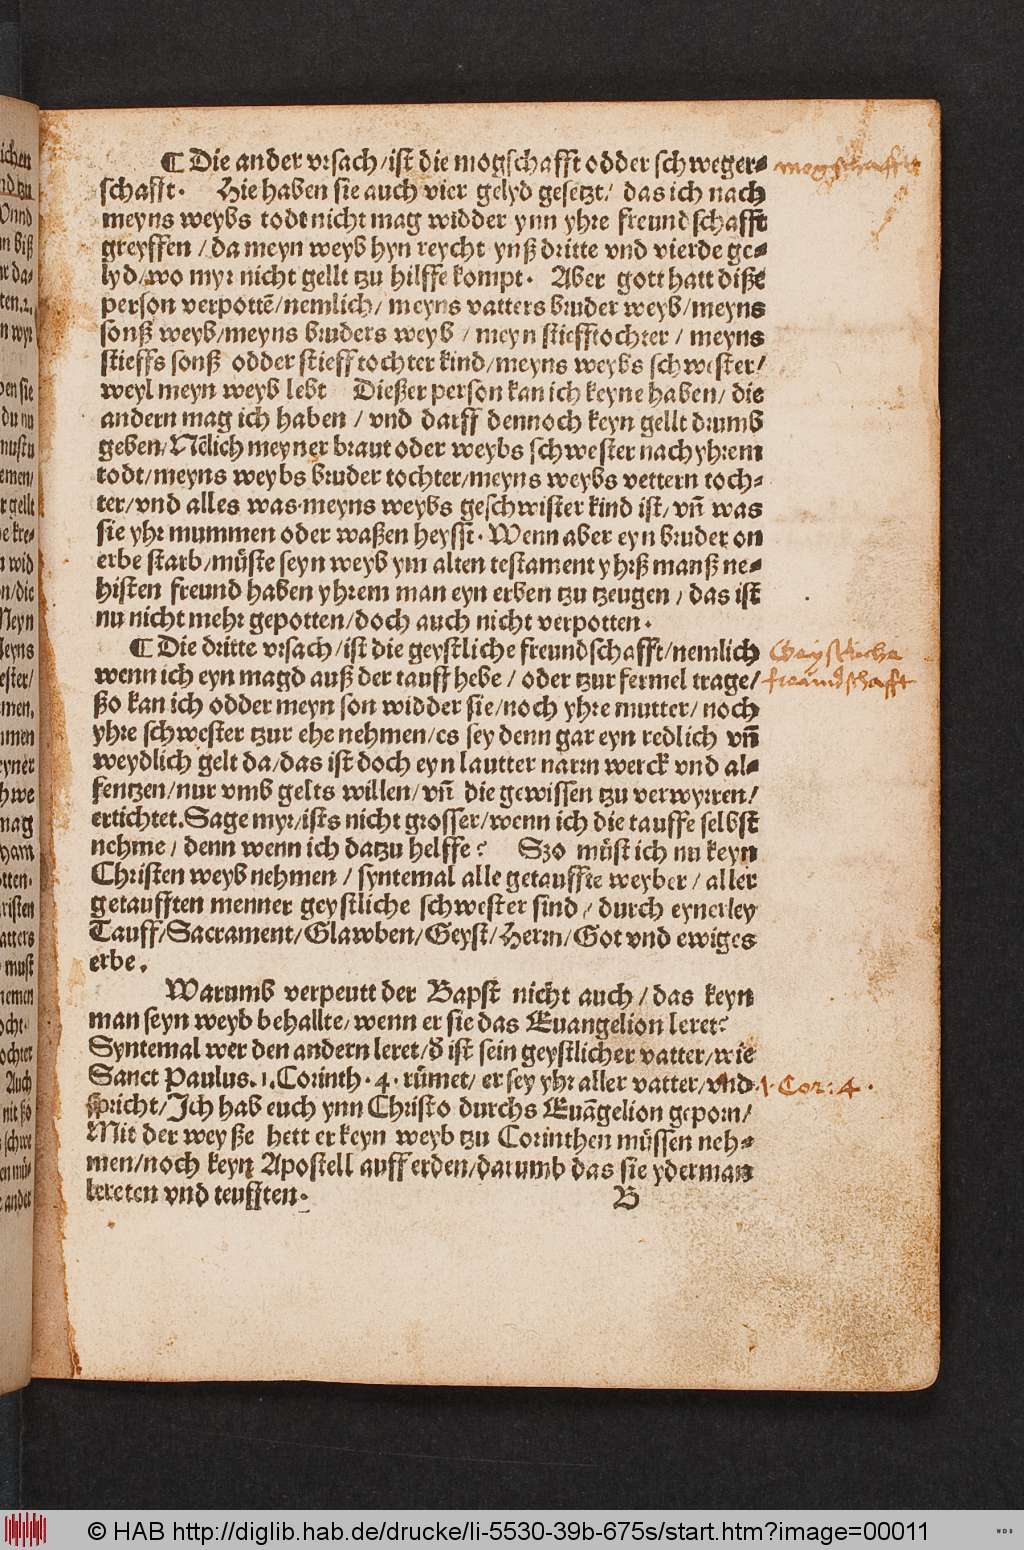 ¶ Die ander vrsach/ist die mogschafft odder schweger⸗ mogschafft
schafft. Hie haben sie auch vier gelyd gesetzt/ das ich nach
meyns weybs todt nicht mag widder ynn yhre freundschafft
greyffen/da meyn weyb hyn reycht ynß dritte vnd vierde ge⸗
lyd/wo myr nicht gellt tzu hilffe kompt. Aber gott hatt diße
person verpottē/nemlich/ meyns vatters bruder weyb/meyns
sonß weyb/meyns bruders weyb/ meyn stiefftochter/ meyns
stieffs sonß odder stiefftochter kind/meyns weybs schwester/
weyl meyn weyb lebt Dießer person kan ich keyne haben/ die
andern mag ich haben/ vnd darff dennoch keyn gellt drumb
geben/Nēlich meyner braut oder weybs schwester nach yhrem
todt/meyns weybs bruder tochter/meyns weybs vettern toch⸗
ter/vnd alles was meyns weybs geschwister kind ist/vn̄ was
sie yhr mummen oder waßen heysst. Wenn aber eyn bruder on
erbe starb/müste seyn weyb ym alten testament yhrß manß ne⸗
histen freund haben yhrem man eyn erben tzu tzeugen/ das ist
nu nicht mehr gepotten/doch auch nicht verpotten.
¶ Die dritte vrsach/ist die geystliche freundschafft/nemlich Geystliche
wenn ich eyn magd auß der tauff hebe/ oder tzur fermel trage/ freundschafft
ßo kan ich odder meyn son widder sie/noch yhre mutter/ noch
yhre schwester tzur ehe nehmen/es sey denn gar eyn redlich vn̄
weydlich gelt da/das ist doch eyn lautter narrn werck vnd al⸗
fentzen/nur vmb gelts willen/vn̄ die gewissen tzu verwyrren/
ertichtet. Sage myr/ists nicht grosser/wenn ich die tauffe selbst
nehme/ denn wenn ich datzu helffe? Szo müst ich nu keyn
Christen weyb nehmen/ syntemal alle getauffte weyber/ aller
getaufften menner geystliche schwester sind/ durch eynerley
Tauff/Sacrament/Glawben/Geyst/Herrn/Got vnd ewiges
erbe.
Warumb verpeutt der Bapst nicht auch/ das keyn
man seyn weyb behallte/wenn er sie das Euangelion leret?
Syntemal wer den andern leret/ð ist sein geystlicher vatter/wie
Sanct Paulus. 1. Corinth. 4. rümet/ er sey yhr aller vatter/vnd 1. Cor: 4.
spricht/Ich hab euch ynn Christo durchs Euāgelion geporn/
Mit der weyße hett er keyn weyb tzu Corinthen müssen neh⸗
men/noch keyn Apostell auff erden/darumb das sie yderman
lereten vnd teufften.
B
© HAB http://diglib.hab.de/drucke/li-5530-39b-675s/start.htm?image=00011